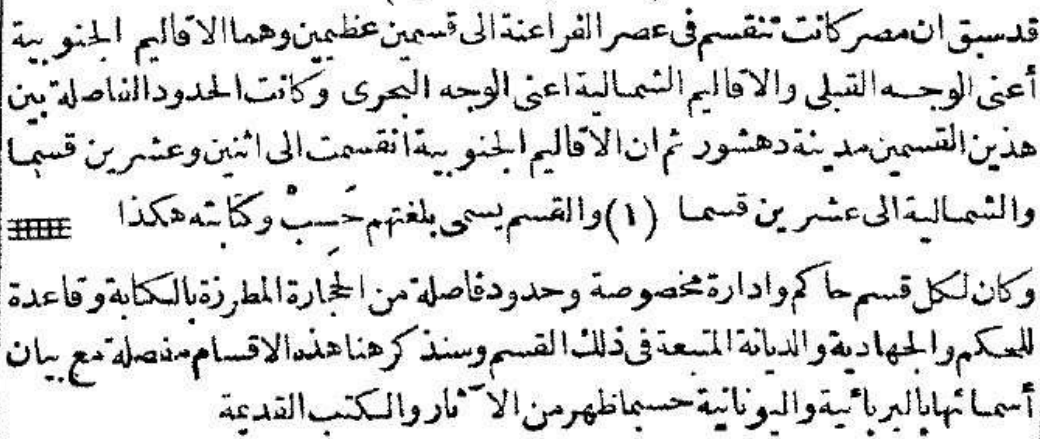 قد سبق ان مصر كانت تنقسم فى عصر الفراعنة الى قسمين عظيمين وهما الاقاليم الجنوبية
أعنى الوجه القبلى والاقاليم الشمالية اعنى الوجه البحرى وكانت الحدود الفاصلة بين
هذين القسمين مدينة دهشور ثم ان الاقاليم الجنوبية انقسمت الى اثنين وعشرين قسما
والشمالية الى عشرين قسما (١) والقسم يسمى بلغتهم حَسِبْ وكتابته هكذا
وكان لكل قسم حاكم وادارة مخصوصة وحدود فاصلة من الحجارة المطرزة بالكتابة وقاعدة
للحكم والجهادية والديانة المتبعة فى ذلك القسم وسنذكر هنا هذه الاقسام مفصلة مع بيان
أسمائها بالبربائية واليونانية حسبما ظهر من الآثار والكتب القديمة